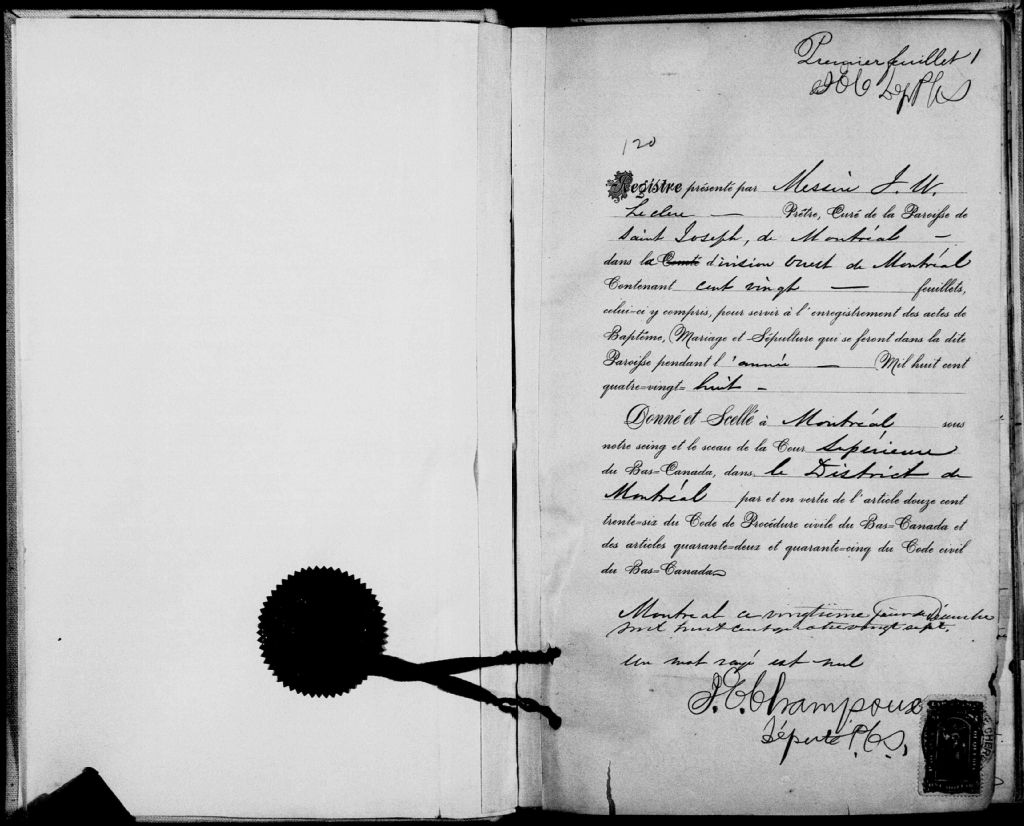 Premier feuillet 1
J.E.C Dep P.C.S
120
Registre présenté par Messire J. U.
Leclerc — Prêtre, Curé de la Paroisse de
saint Joseph, de Montréal —
dans la Comté division ouest de Montréal
Contenant cent vingt — feuillets,
celui-ci y compris, pour servir à l'enregistrement des actes de
Baptême, Mariage et Sépulture qui se feront dans la dite
Paroisse pendant l'année — Mil huit cent
quatre=vingt= huit —
Donné et Scellé à Montréal sous
notre seing et le sceau de la Cour Supérieure
du Bas=Canada, dans le District de
Montréal par et en vertu de l'article douze cent
trente=six du Code de Procédure civile du Bas=Canada et
des articles quarante=deux et quarante=cinq du Code civil
du Bas=Canada
Montreal ce vingtième jour de Décembre
mil huit cent quatre vingt sept.
Un mot rayé est nul
J.E. Champoux
Député P.C.S.